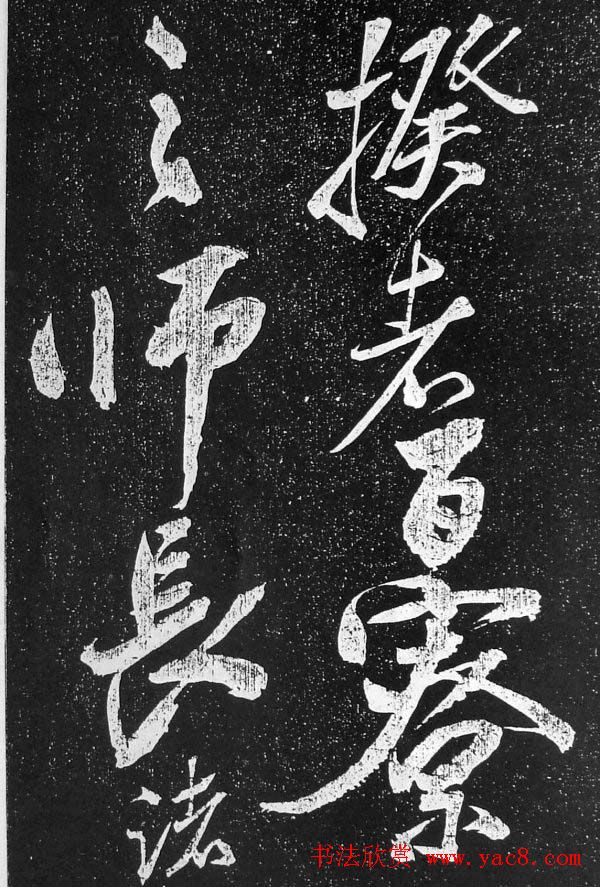 揆者百寮
之师長诸
书法欣赏 www.yac8.com